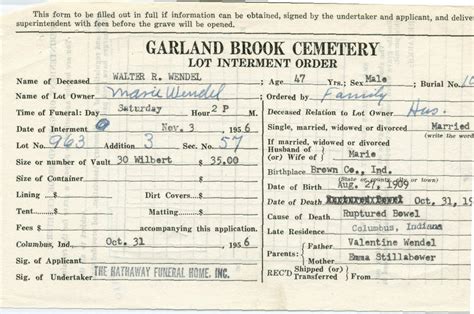 This form to be filled out in full if information can be obtained, signed by the undertaker and applicant, and deliver
superintendent with fees before the grave will be opened.
GARLAND BROOK CEMETERY
LOT INTERMENT ORDER
Name of Deceased WALTER R. WENDEL Age 47 Yrs.; Sex Male Burial No. 10
Name of Lot Owner Marie Wendel Ordered by Family
Time of Funeral: Day Saturday Hour 2 P M. Deceased Relation to Lot Owner Hus.
Date of Interment Nov. 3 1956 Single, married, widowed or divorced Married
(Write the word)
Lot No. 963 Addition 3 Sec. No. 57 If married, widowed or divorced
Husband of
(or) Wife of Marie
Size or number of Vault 30 Wilbert $ 35.00
Birthplace Brown Co., Ind.
(State or county, city or town)
Size of Container Date of Birth Aug. 27, 1909
Lining $ Dirt Covers $ Date of Death Oct. 31, 19
Tent $ Matting $ Cause of Death Ruptured Bowel
Fees $ accompanying this application. Late Residence Columbus, Indiana
Columbus, Ind., Oct. 31 1956 Parents: Father Valentine Wendel
Mother Emma Stillabower
Sig. of Applicant
Sig. of Undertaker THE HATHAWAY FUNERAL HOME, INC. REC'D Shipped (or) Transfer)
From